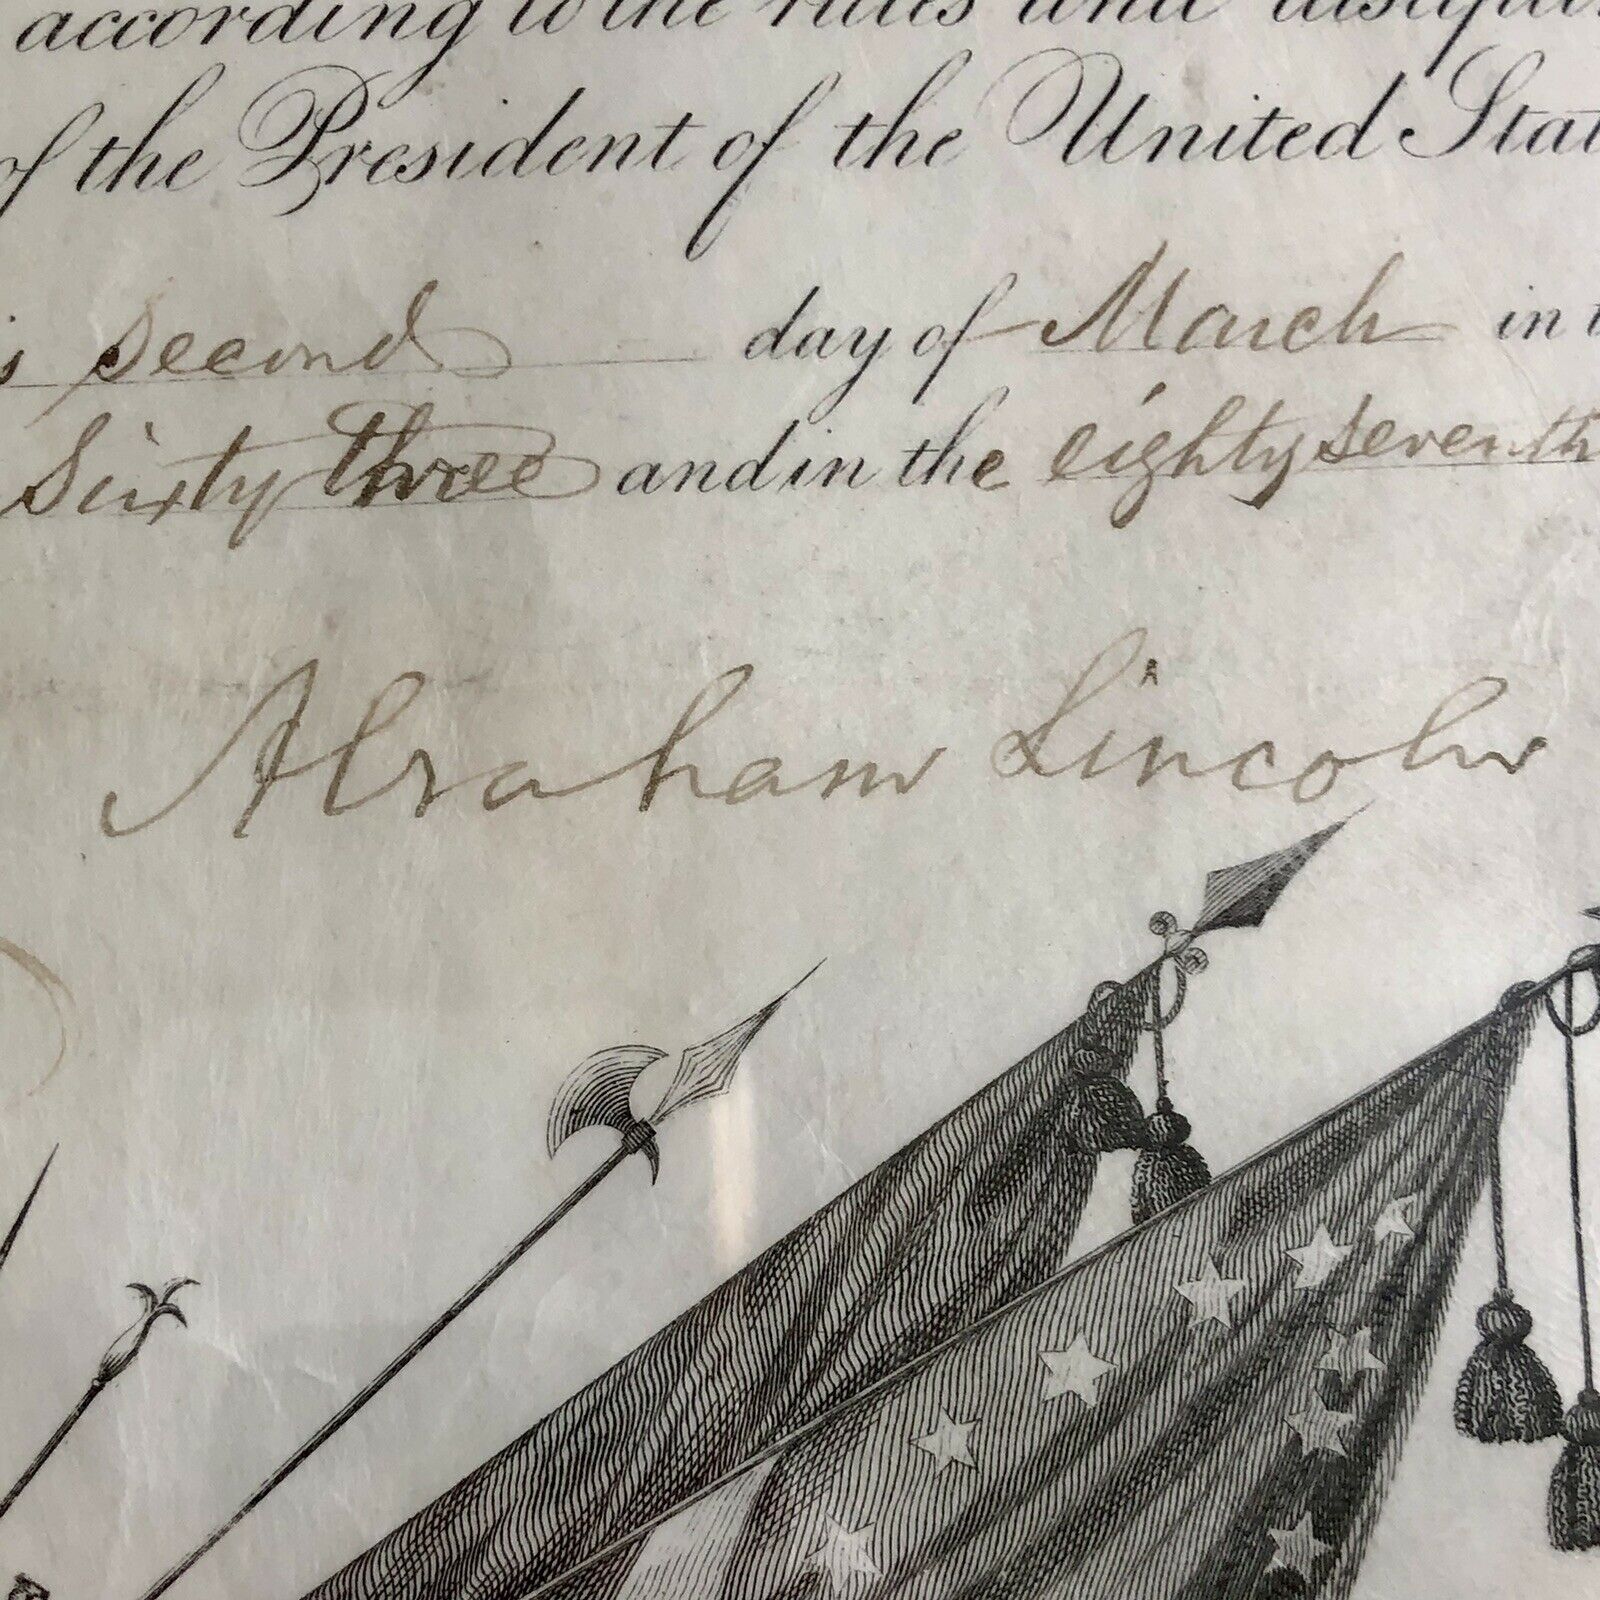 according to the rules and
of the President of the United
second day of March in
Sixty three and in the eighty seventh
Abraham Lincoln